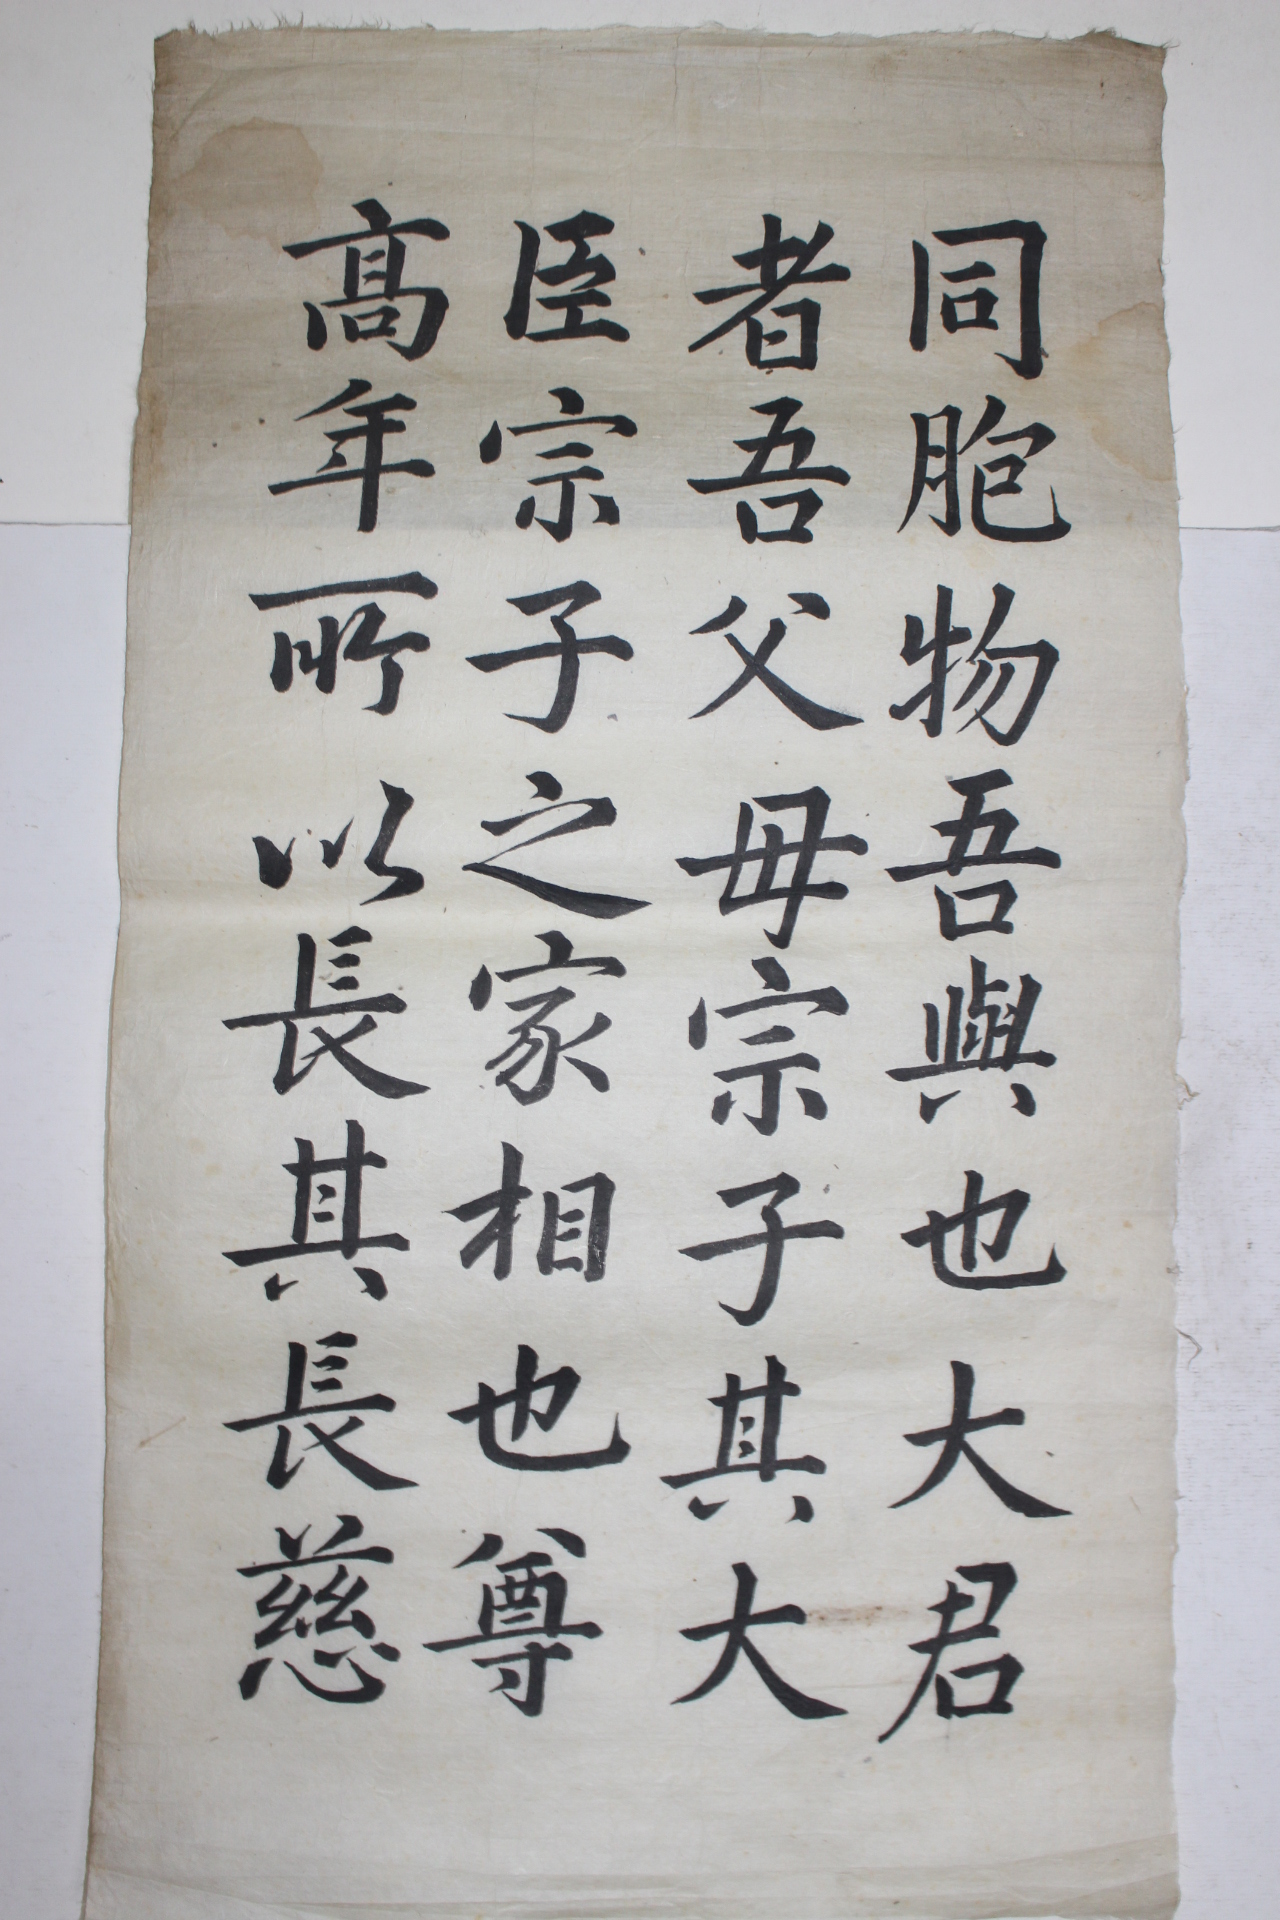 同胞物吾與也大君
者吾父母宗子其大
臣宗子之家相也尊
高年所以長其長慈